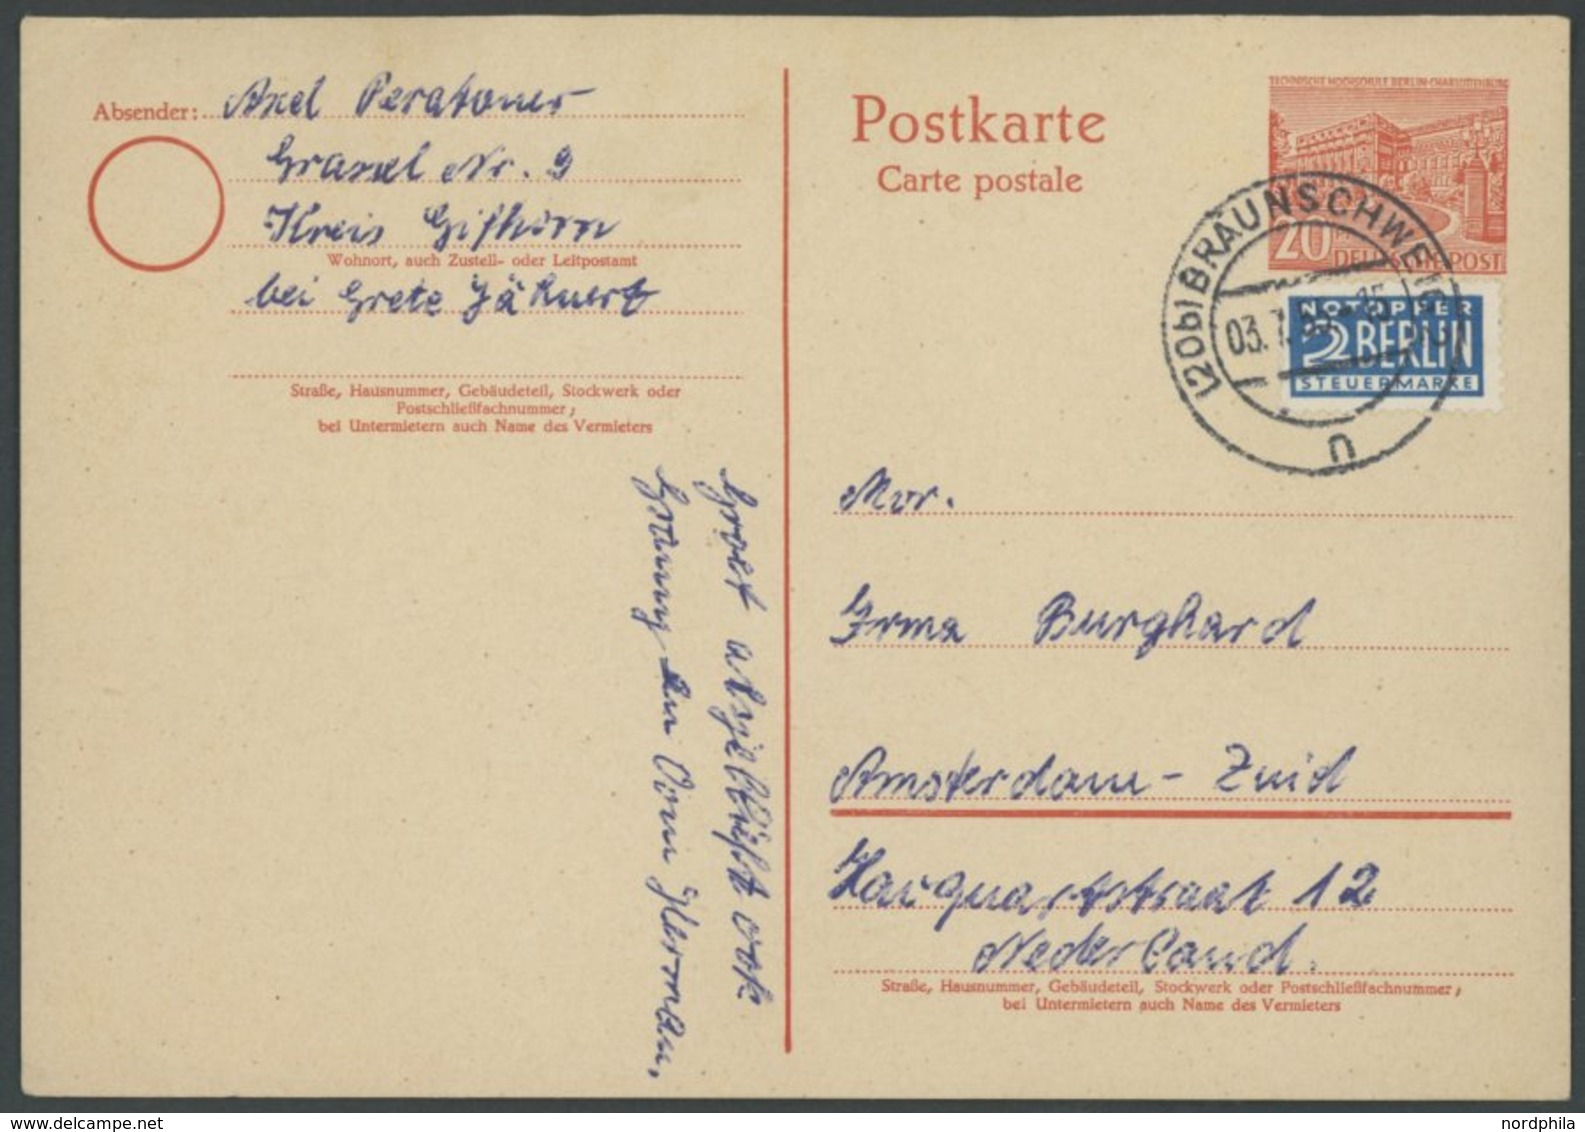 Absender: Axel Peratoner
Grassel Nr. 9
Kreis Gifhorn
Wohnort, auch Zustell- oder Leitpostamt
bei Grete Jäkuert
Straße, Hausnummer, Gebäudeteil, Stockwerk oder
Postschließfachnummer;
bei Untermietern auch Name des Vermieters
Groet alsjeblieft ook
Hermau,
Postkarte
Carte postale
TECHNISCHE HOCHSCHULE BERLIN-CHARLOTTENBURG
20 DEUTSCHE POST
(20b) BRAUNSCHWEIG
03.1.
u
NOTOPFER
2 BERLIN
STEUERMARKE
Mvr.
Irma Burghard
Amsterdam - Zuid
Haiquartstraat 12
Nederland.
Straße, Hausnummer, Gebäudeteil, Stockwerk oder Postschließfachnummer;
bei Untermietern auch Name des Vermieters
nordphila